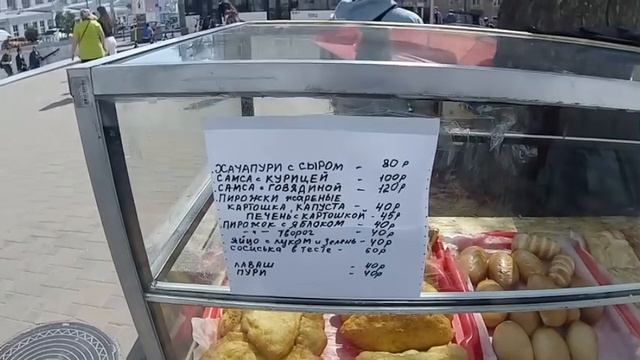 ХАЧАПУРИ С СЫРОМ - 80р
САМСА С КУРИЦЕЙ - 100р
САМСА С ГОВЯДИНОЙ - 120р
ПИРОЖКИ ЖАРЕНЫЕ
КАРТОШКА, КАПУСТА - 40р
ПЕЧЕНЬ С КАРТОШКОЙ - 45р
ПИРОЖОК С ЯБЛОКОМ - 40р
-"- ТВОРОГ - 40р
ЯЙЦО С ЛУКОМ И ЗЕЛЕНЬ - 40р
СОСИСЬКА В ТЕСТЕ - 60р
ЛАВАШ - 40р
ПУРИ - 40р